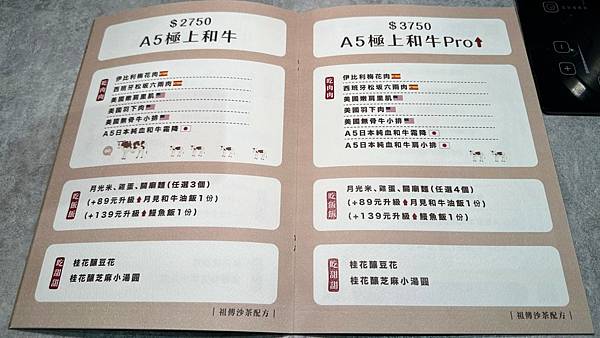 $2750
A5極上和牛
吃肉肉
伊比利梅花肉
西班牙松坂六兩肉
美國嫩肩里肌
美國羽下肉
美國無骨牛小排
A5日本純血和牛霜降
吃飯飯
月光米、雞蛋、關廟麵(任選3個)
(+89元升級月見和牛油飯1份)
(+139元升級鰻魚飯1份)
吃甜甜
桂花釀豆花
桂花釀芝麻小湯圓
| 祖傳沙茶配方 |
$3750
A5極上和牛Pro
吃肉肉
伊比利梅花肉
西班牙松坂六兩肉
美國嫩肩里肌
美國羽下肉
美國無骨牛小排
A5日本純血和牛霜降
A5日本純血和牛肩小排
吃飯飯
月光米、雞蛋、關廟麵(任選4個)
(+89元升級月見和牛油飯1份)
(+139元升級鰻魚飯1份)
吃甜甜
桂花釀豆花
桂花釀芝麻小湯圓
| 祖傳沙茶配方 |